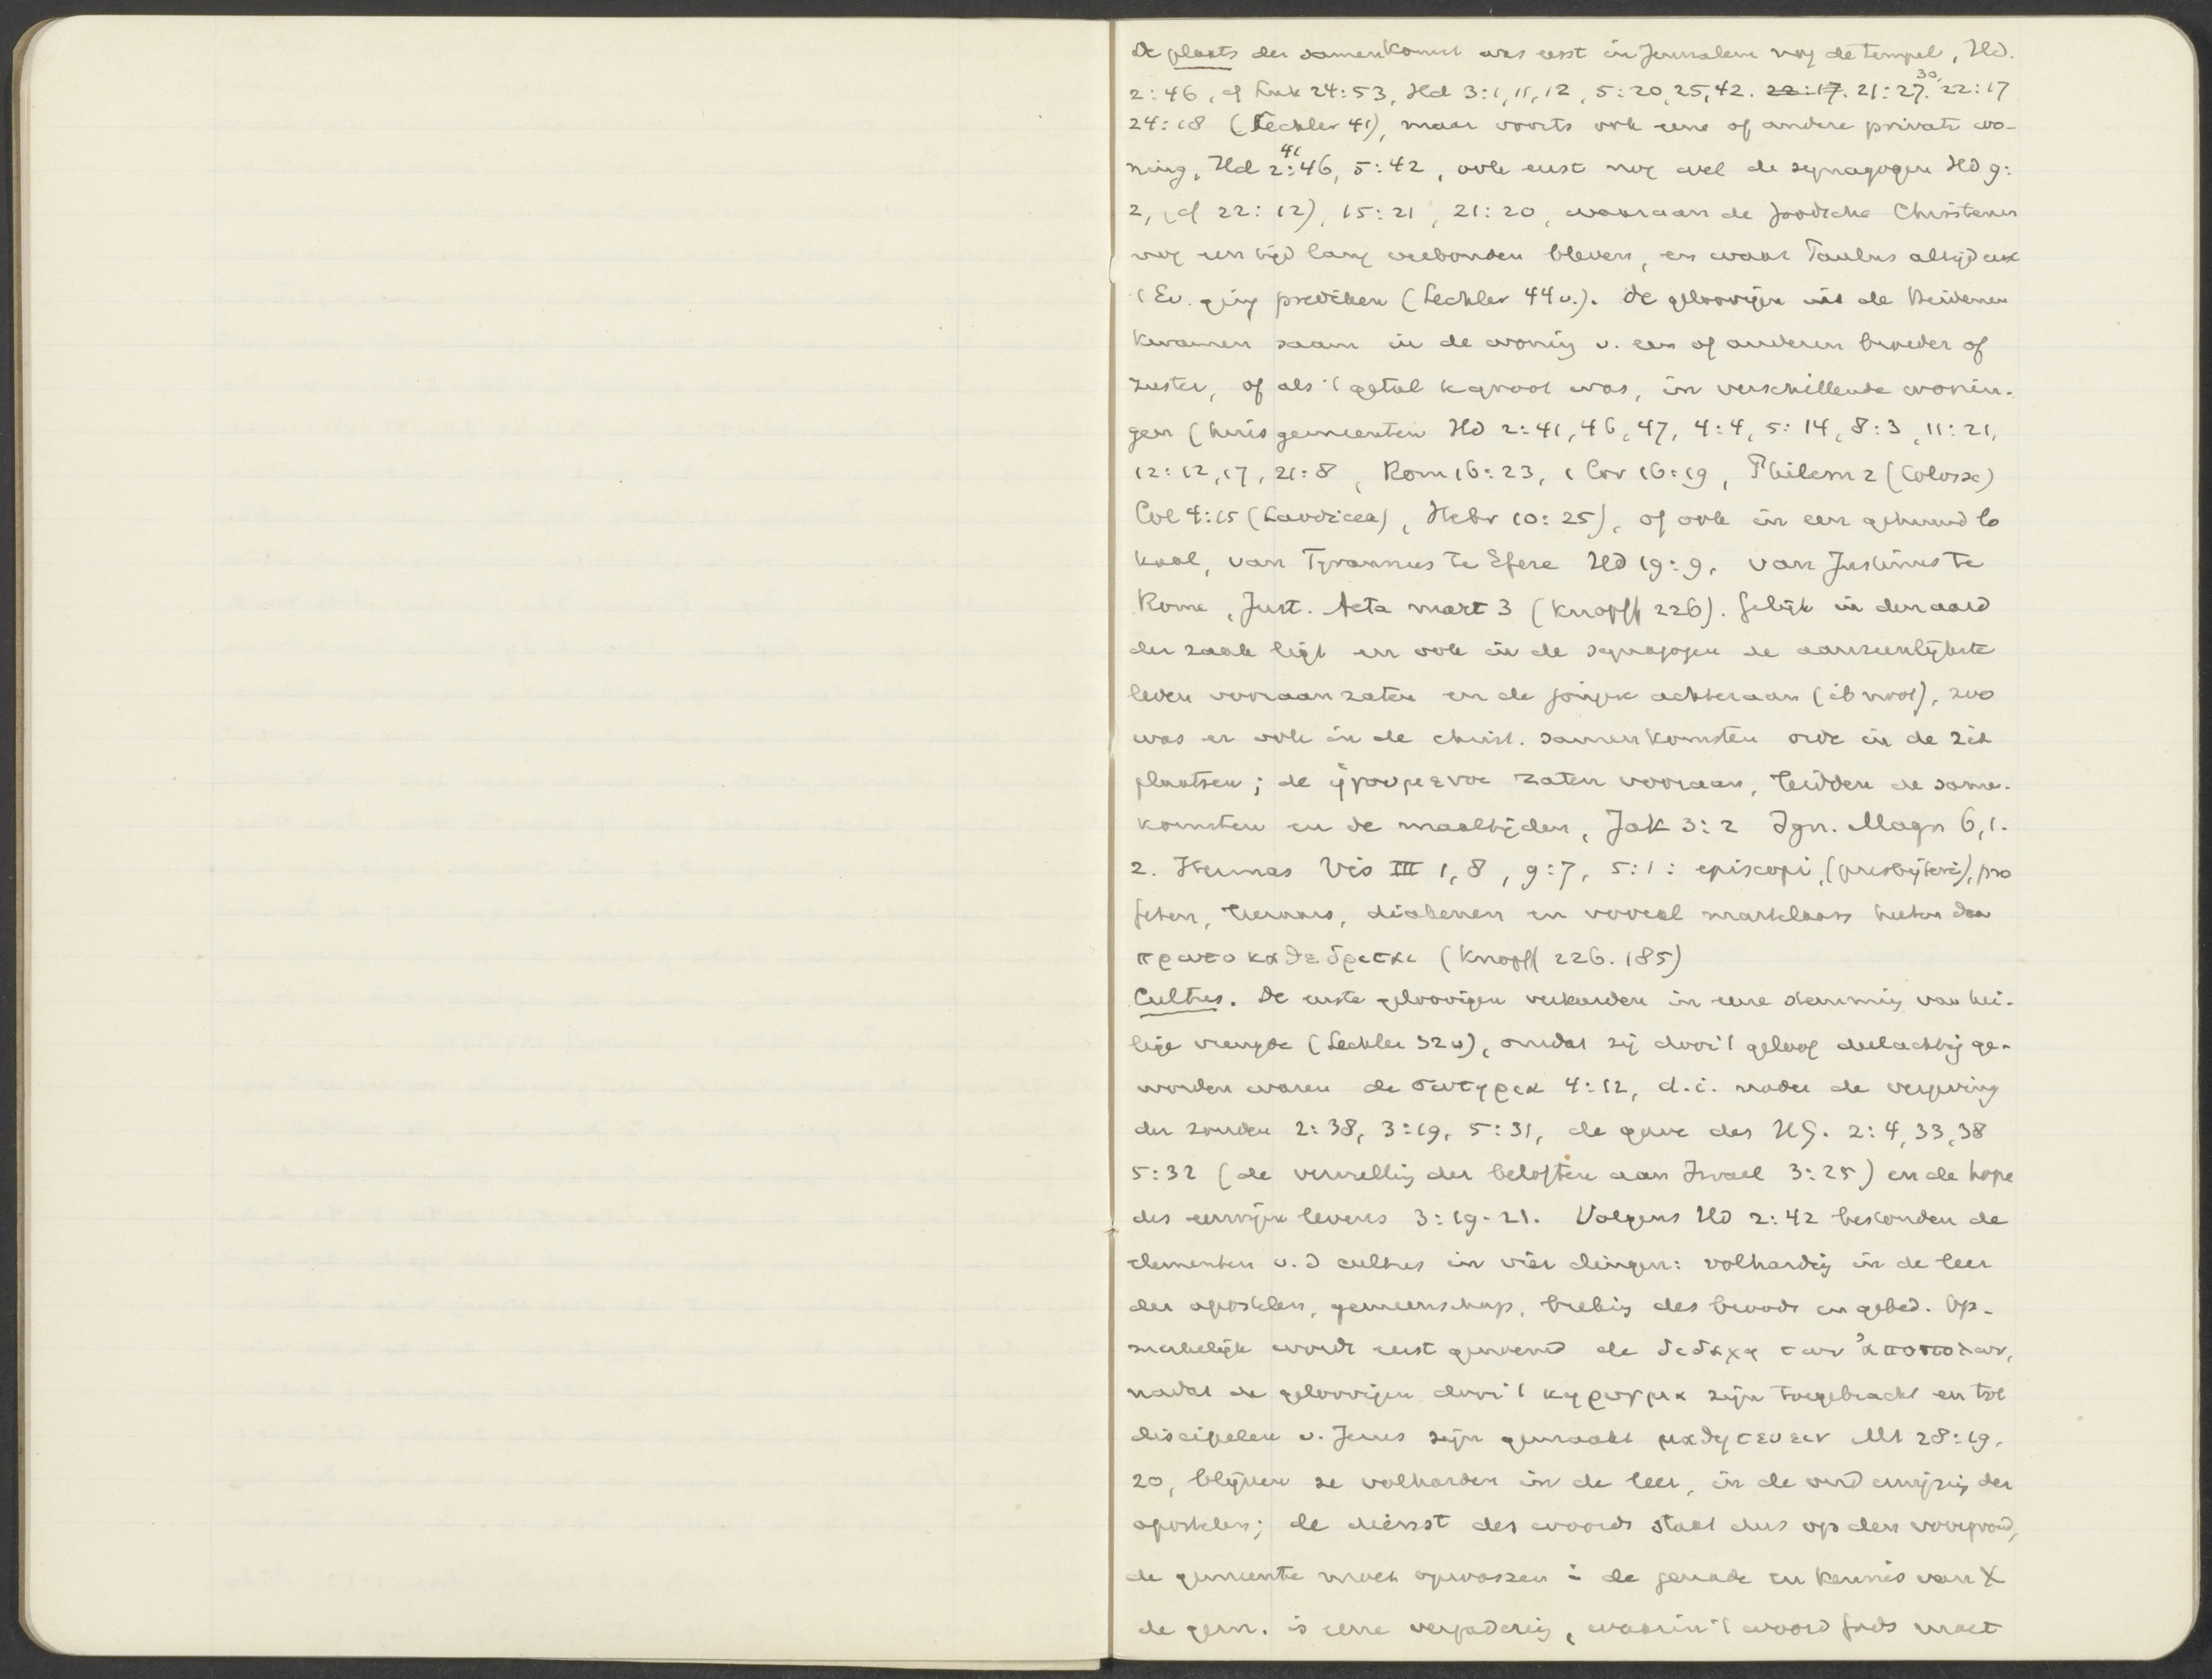 De plaats der samenkomst was eerst in Jerusalem nog de tempel, Hd.
2:46, cf Luk 24:53, Hd 3:1,11,12, 5:20,25,42. 22:17. 21:27.30, 22:17
24:18 (Lechler 41), maar voorts ook eene of andere private wo-
ning, Hd 2:41 46, 5:42, ook eerst nog wel de synagogen Hd 9:
2, (cf 22:12), 15:21, 21:20, waaraan de Joodsche Christenen
nog een tijd lang verbonden bleven, en waar Paulus altijd eerst
't Ev. ging prediken (Lechler 44v.). De geloovigen uit de Heidenen
kwamen saam in de woning v. een of anderen broeder of
zuster, of als 't getal te groot was, in verschillende wonin-
gen (huisgemeenten Hd 2:41,46,47, 4:4, 5:14, 8:3, 11:21,
12:12,17, 21:8, Rom 16:23, 1 Cor 16:19, Philem 2 (Colosse)
Col 4:15 (Laodicea), Hebr 10:25), of ook in een gehuurd lo
kaal, van Tyrannus te Efeze Hd 19:9, van Justinus te
Rome, Just. Acta mart 3 (Knopff 226). Gelijk in den aard
der zaak ligt en ook in de synagogen de aanzienlijkste
leden vooraan zaten en de jongere achteraan (ib noot), zoo
was er ook in de christ. samenkomsten orde in de zit
plaatsen; de ἡγουμενοι zaten vooraan, leidden de samen-
komsten en de maaltijden, Jak 3:2 Ign. Magn 6,1.
2. Hermas Vis III 1,8, 9:7, 5:1: episcopi, (presbyteri), pro
feten, leeraars, diakenen en vooral martelaars heeten daar
πρωτοκαθεδριται (Knopff 226. 185)
Cultus. De eerste geloovigen verkeerden in eene stemming van hei-
lige vreugde (Lechler 32v), omdat zij door 't geloof deelachtig ge-
worden waren de σωτηρια 4:12, d.i. nader de vergeving
der zonden 2:38, 3:19, 5:31, de gave des HG. 2:4,33,38
5:32 (de vervulling der beloften aan Israel 3:25) en de hope
des eeuwigen levens 3:19-21. Volgens Hd 2:42 bestonden de
elementen v.d cultus in vier dingen: volharding in de leer
der apostelen, gemeenschap, breking des broods en gebed. Op-
merkelijk wordt eerst genoemd de διδαχη των ἀποστολων,
nadat de geloovigen door 't κηρυγμα zijn toegebracht en tot
discipelen v. Jezus zijn gemaakt μαθητευειν Mt 28:19,
20, blijven ze volharden in de leer, in de onderwijzing der
apostelen; de dienst des woords staat dus op den voorgrond,
de gemeente moet opwassen in de genade en kennis van X
de gem. is eene vergadering, waarin 't woord Gods moet